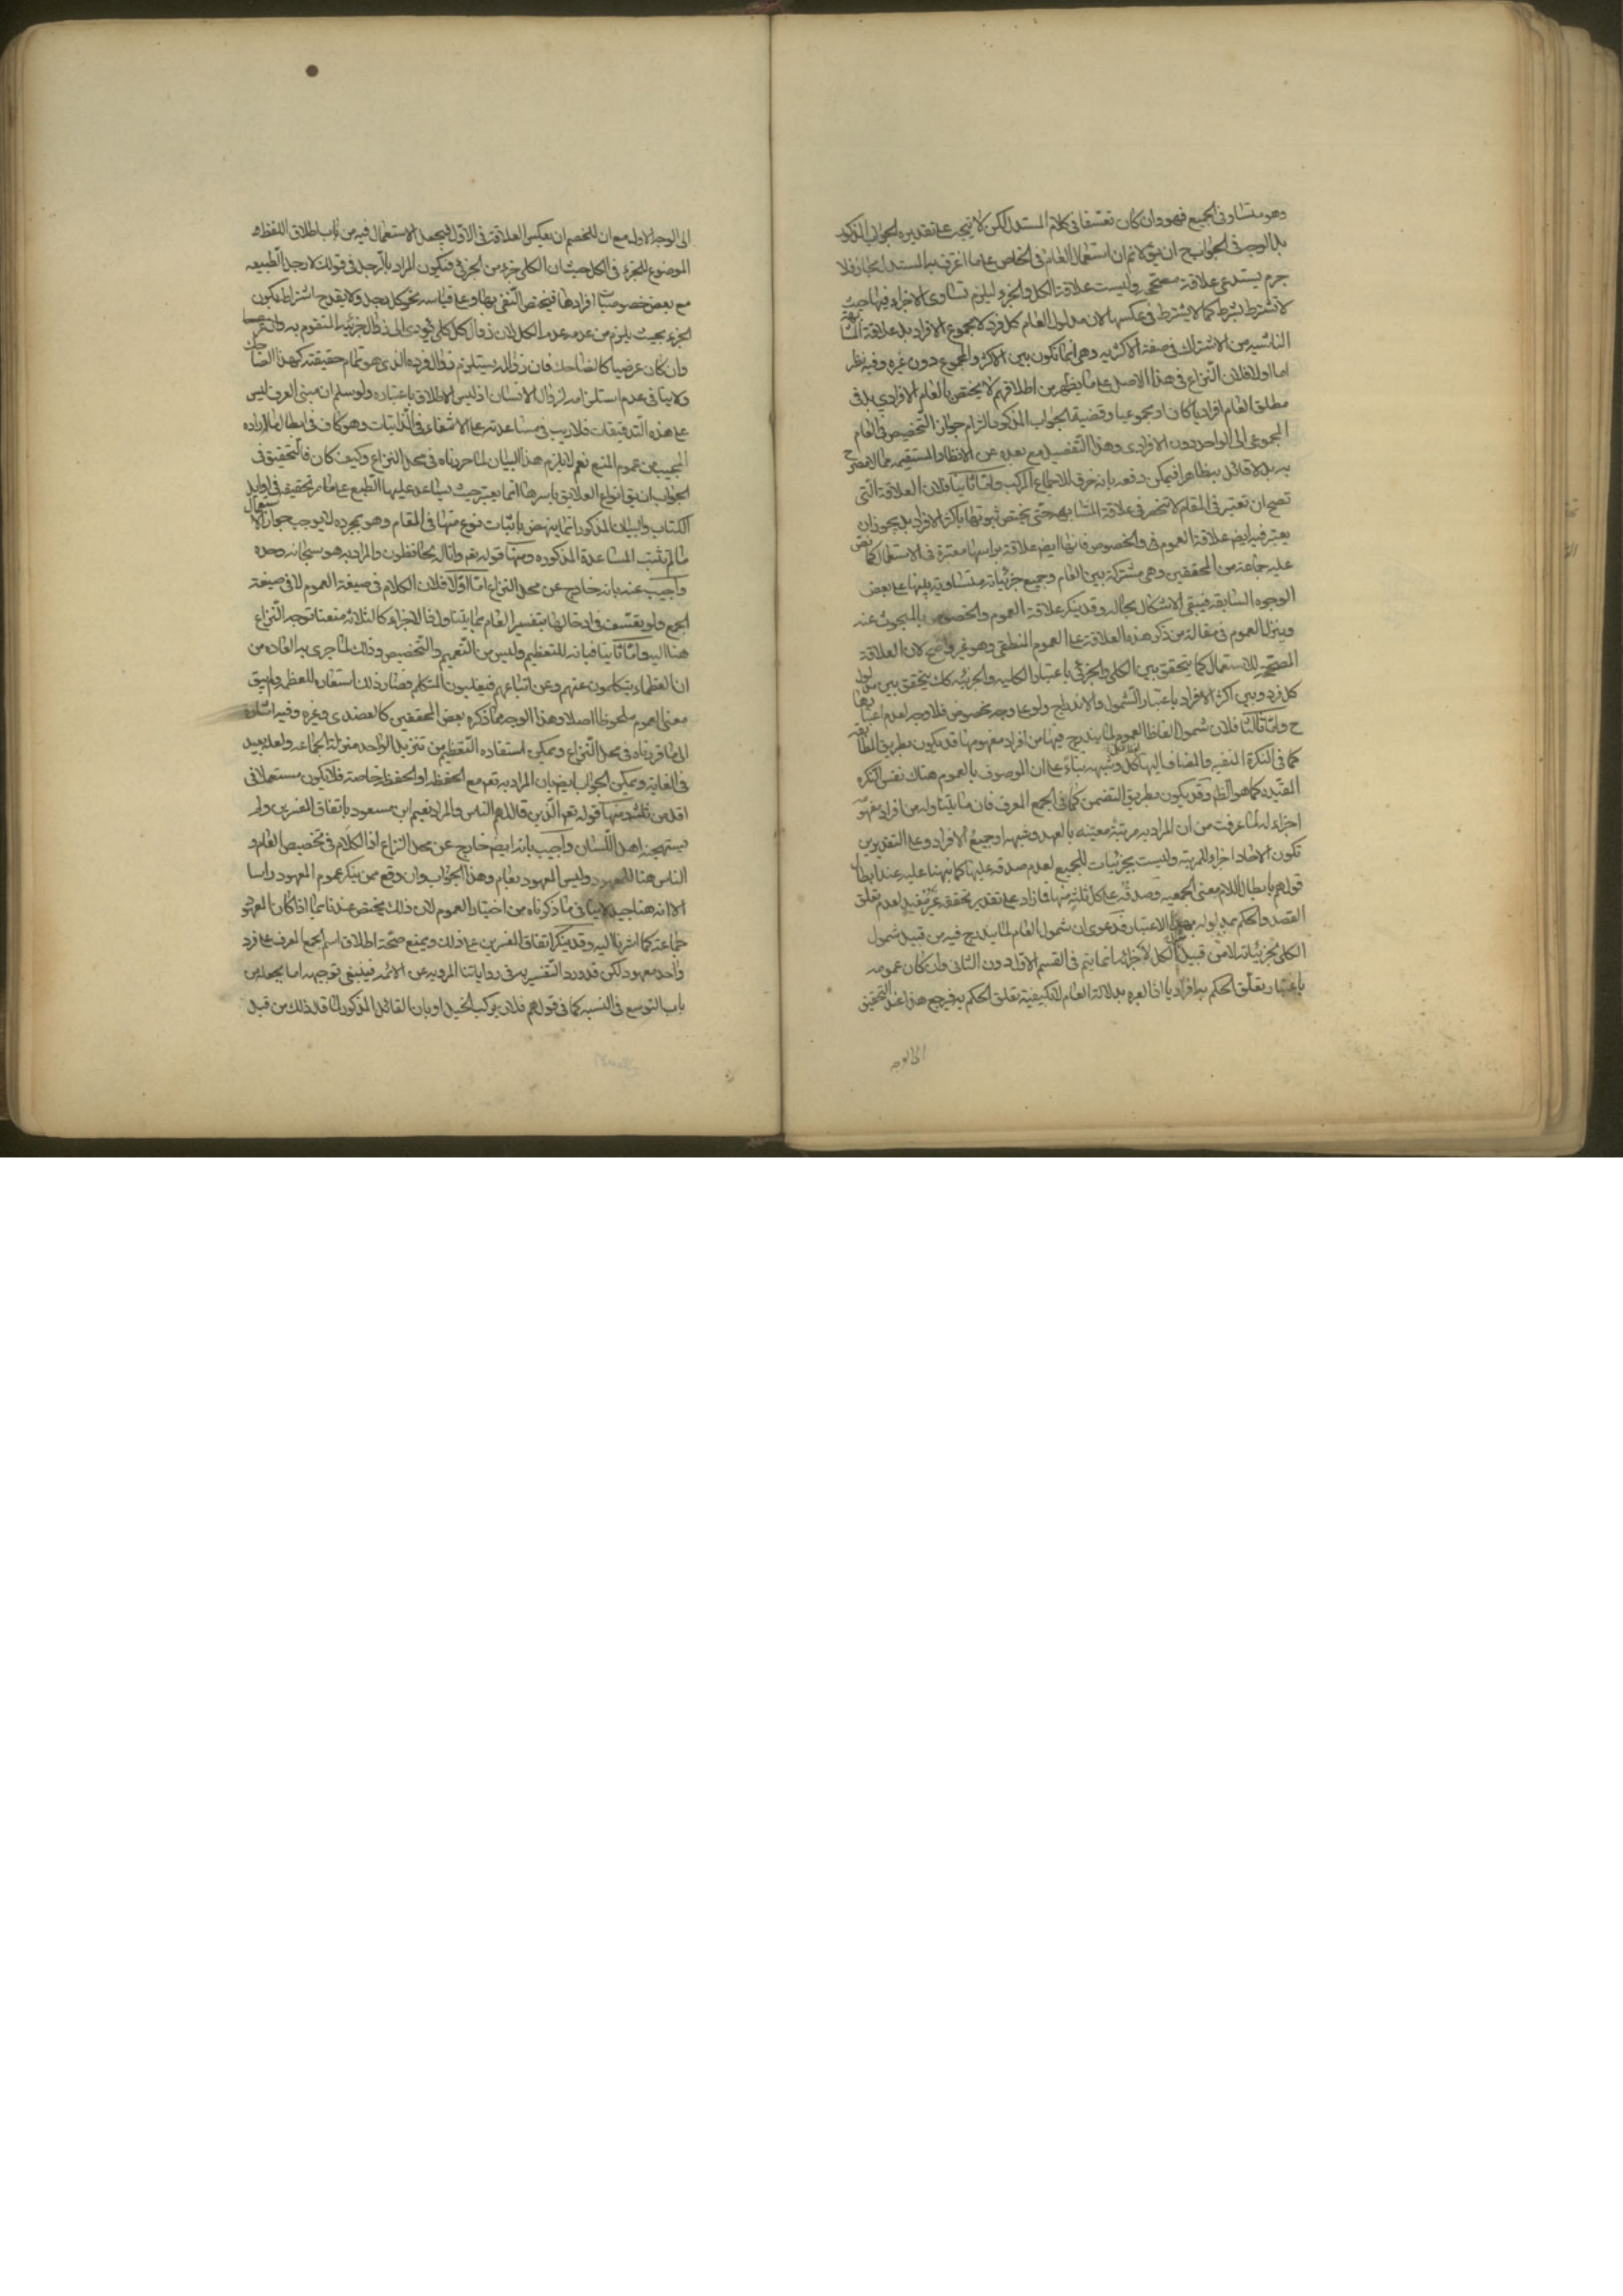 وهو متساو فى الجميع فهو وان كان تعسفا فى كلام المستدل لكن لا يتجه على تقديره الجواب المذكور
بل الوجه فى الجواب ح ان يق لا نم ان استعمال العام فى الخاص على ما اعترف به المستدل مجاز فلا
جرم يستدعى علاقة مصححة وليست علاقة الكل والجزء ليلزم تساوى الاجزاء فيها حيث
لا تشترط بشرط كما لا يشترط فى عكسها لان مدلول العام كل فرد لا مجموع الافراد بل علاقة المشابهة
الناشيه من الاشتراك فى صفة الاكثريه وهى انما تكون بين الاكثر والمجموع دون غيره وفيه نظر
اما اولا فلان النزاع فى هذا الاصل على ما يظهر من اطلاقهم لا يختص بالعام الافرادي بل فى
مطلق العام افراديا كان او مجموعيا وقضية الجواب المذكور الزام جواز التخصيص فى العام
المجموعى الى الواحد دون الافرادى وهذا التفصيل مع بعده عن الانظار المستقيمه مما لا مصرح
به بل لا قائل به ظاهرا فيمكن دفعه بانه خرق للاجماع المركب واما ثانيا فلان العلاقة التى
تصح ان تعتبر فى المقام لا تنحصر فى علاقة المشابهة حتى يختص ثبوتها باكثر الافراد بل يجوز ان
يعتبر فيه ايض علاقة العموم فى والخصوص فانها ايض علاقة براسها معتبرة فى الاستعمال كما نص
عليه جماعة من المحققين وهى مشتركة بين العام وجميع جزئياته متساوية بينها على بعض
الوجوه السابقه فيبقى الاشكال بحاله وقد ينكر علاقة العموم والخصوص بالمبحوث عنه
وينزل العموم فى مقالة من ذكر هذه العلاقة على العموم المنطقى وهو غير واضح لان العلاقة
المصححة للاستعمال كما يتحقق بين الكلى والجزئى باعتبار الكليه والجزئيه كك يتحقق بين مدلول
كل فرد وبين اكثر الافراد باعتبار الشمول والاندراج ولو على وجه مخصوص فلا وجه لعدم اعتبارها
ح واما ثالثا فلان شمول الفاظ العموم لما يندرج فيها من افراد مفهومها قد يكون بطريق المطابقه
كما فى النكرة المنفيه والمضاف اليها لفظ كل وشبهه بناء على ان الموصوف بالعموم هناك نفس النكره
المقيده كما هو الظ وقد يكون بطريق التضمن كما فى الجمع المعرف فان ما يتناوله من افراد مفهومه
اجزاء له لما عرفت من ان المراد به مرتبة معينه بالعهد وشبهه او جميع الافراد وعلى التقديرين
تكون الاحاد اجزاء للمرتبه وليست بجزئيات للجميع لعدم صدقه عليها كما نبهنا عليه عند ابطال
قولهم بابطال اللام معنى الجمعيه وصدقه على كل ثلثة منها فازاد على تقدير تحققه غير مفيد لعدم تعلق
القصد والحكم بمدلوله بهذا الاعتبار فدعوى ان شمول العام لما يندرج فيه من قبيل شمول
الكلى لجزئياته لا من قبيل شمول الكل لاجزائه انما يتم فى القسم الاول دون الثانى وان كان عمومه
باعتبار تعلق الحكم به افراديا اذ العبره بدلالة العام لا بكيفية تعلق الحكم به فيرجع هذا عند التحقيق
الى الوجه
الى الوجه الاول مع ان للخصم ان يعكس العلاقة فى الاول فيجعل الاستعمال فيه من باب اطلاق اللفظ
الموضوع للجزء فى الكل حيث ان الكلى جزء من الجزئى فيكون المراد بالرجل فى قولك لا رجل الطبيعه
مع بعض خصوصيات افرادها فيختص النفى بها وعلى قياسه نحو كل رجل ولا يقدح اشتراط كون
الجزء بحيث يلزم من عدمه عدم الكل لان زوال كل كلى يؤدى الى زوال جزئيه المتقوم به
وان كان عرضيا كالضاحك فان زواله يستلزم زوال فرده الذى هو تمام حقيقته كهذا الضاحك
ولا ينافى عدم استلزامه لزوال الانسان اذ ليس الاطلاق باعتباره ولو سلم ان مبنى العرف ليس
على هذه التدقيقات فلا ريب فى مساعدته على الانتفاء فى الذاتيات وهو كاف فى ابطال ما اراده
المجيب من عموم المنع نعم لا يلزم هذا البيان لما حررناه فى محل النزاع وكيف كان فالتحقيق فى
الجواب ان يق انواع العلايق باسرها انما يعتبر حيث يساعد عليها الطبع على ما مر تحقيقه فى اوايل
الكتاب والبيان المذكور انما ينهض باثبات نوع منها فى المقام وهو بمجرده لا يوجب جواز الاستعمال
ما لم يثبت المساعدة المذكوره ومنها قوله تع وانا له لحافظون والمراد به هو سبحانه وحده
واجيب عنه بانه خارج عن محل النزاع اما اولا فلان الكلام فى صيغة العموم لا فى صيغة
الجمع ولو تعسف فى ادخالها بتفسير العام بما يتناول الاجزاء كالثلاثه منعنا توجه النزاع
هنا اليه واما ثانيا فبانه للتعظيم وليس من التعميم والتخصيص وذلك لما جرى به العاده من
ان العظماء يتكلمون عنهم وعن اتباعهم فيغلبون المتكلم فصار ذلك استعاره للعظمه ولم يبق
معنى العموم ملحوظا اصلا وهذا الوجه مما ذكره بعض المحققين كالعضدى وغيره وفيه اشارة
الى ما قررناه فى محل النزاع ويمكن استفاده التعظيم من تنزيل الواحد منزلة الجماعه ولعله بعيد
فى الغايه ويمكن الجواب ايض بان المراد به تع مع الحفظه او الحفظه خاصة فلا يكون مستعملا فى
اقل من ثلثه ومنها قوله تع الذين قال لهم الناس والمراد نعيم ابن مسعود باتفاق المفسرين ولم
يستهجنه اهل اللسان واجيب بانه ايض خارج عن محل النزاع اذ الكلام فى تخصيص العام و
الناس هنا للمعهود وليس المعهود بعام وهذا الجواب وان وقع ممن ينكر عموم المعهود راسا
الا انه هنا جيد لا ينافى ما ذكرناه من اختيار العموم لان ذلك مختص عندنا بما اذا كان المعهود
جماعة كما اشرنا اليه وقد ينكر اتفاق المفسرين على ذلك ويمنع صحة اطلاق اسم الجمع المعرف على فرد
واحد معهود لكن قد ورد التفسير به فى رواياتنا المرويه عن الائمه فينبغى توجيهه اما بجعله من
باب التوسع فى النسبه كما فى قولهم فلان يركب الخيل او بان القائل المذكور لما قال ذلك من قبل